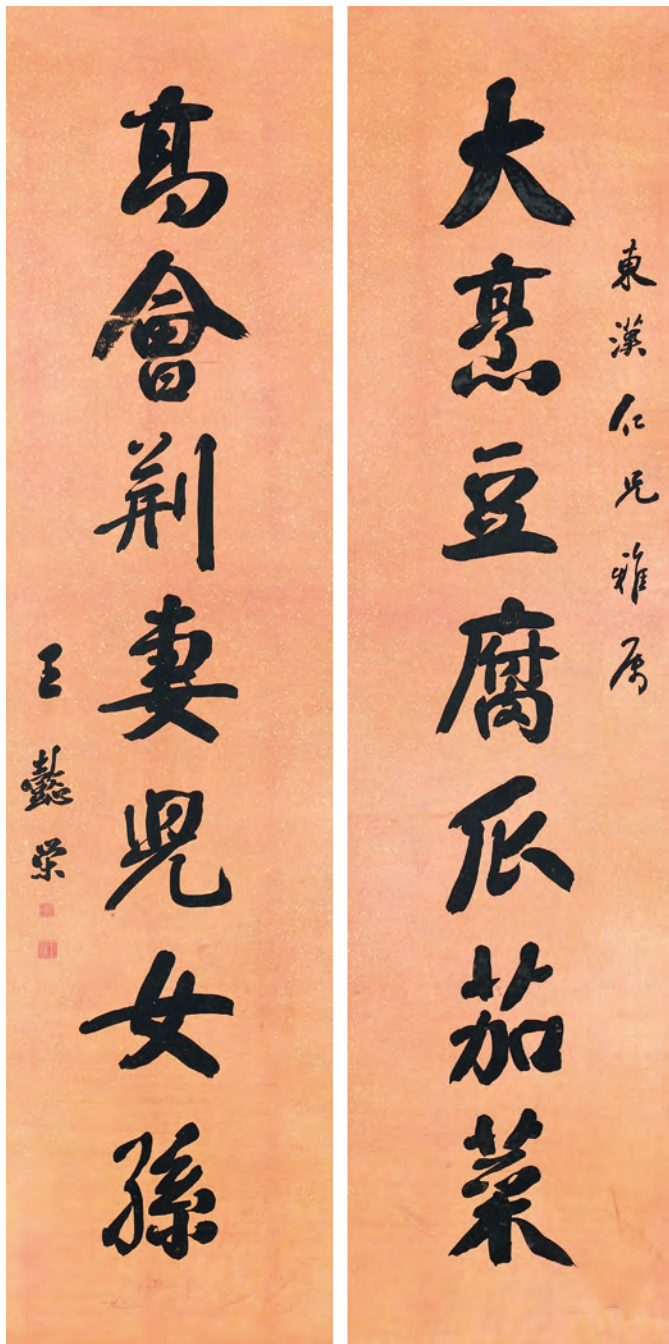 東漢仁兄雅屬
大烹豆腐瓜茄菜
高會荆妻兒女孫
王懿榮